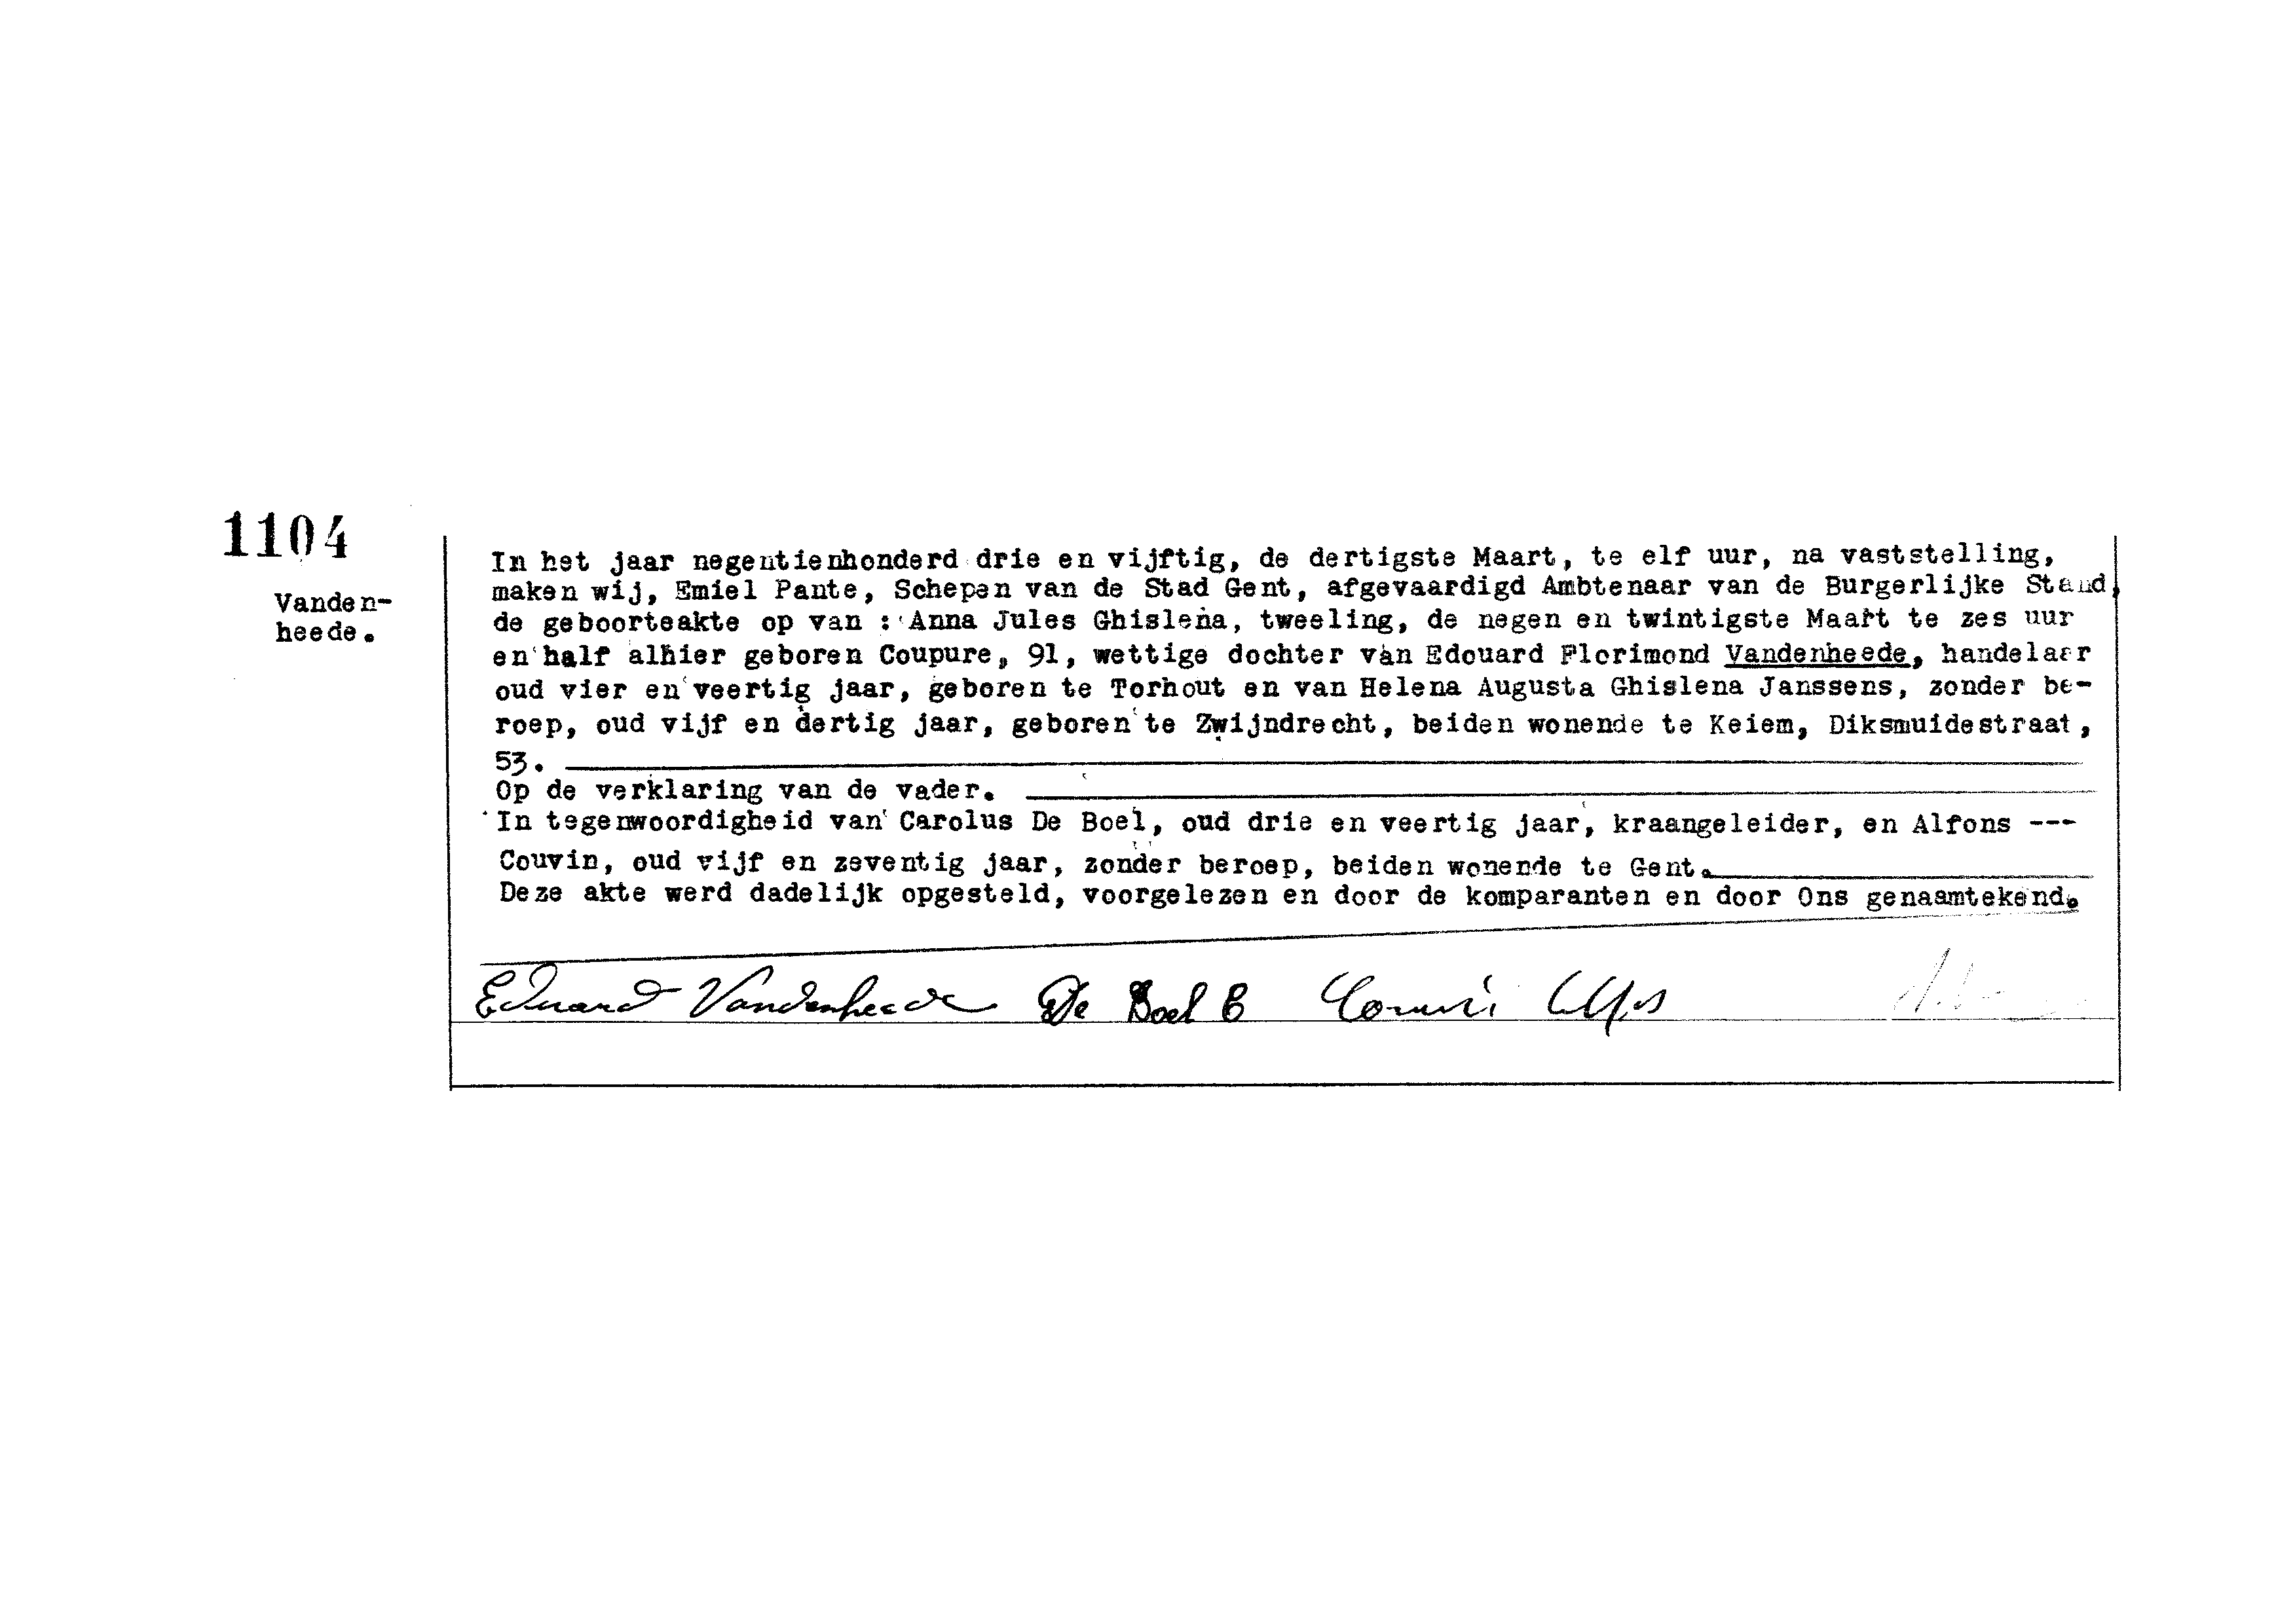 1104
Vanden-
heede.
In het jaar negentienhonderd drie en vijftig, de dertigste Maart, te elf uur, na vaststelling,
maken wij, Emiel Pante, Schepen van de Stad Gent, afgevaardigd Ambtenaar van de Burgerlijke Stand,
de geboorteakte op van : Anna Jules Ghislena, tweeling, de negen en twintigste Maart te zes uur
en half alhier geboren Coupure, 91, wettige dochter van Edouard Florimond Vandenheede, handelaar
oud vier en veertig jaar, geboren te Torhout en van Helena Augusta Ghislena Janssens, zonder be-
roep, oud vijf en dertig jaar, geboren te Zwijndrecht, beiden wonende te Keiem, Diksmuidestraat,
53.
Op de verklaring van de vader.
In tegenwoordigheid van Carolus De Boel, oud drie en veertig jaar, kraangeleider, en Alfons ---
Couvin, oud vijf en zeventig jaar, zonder beroep, beiden wonende te Gent.
Deze akte werd dadelijk opgesteld, voorgelezen en door de komparanten en door Ons genaamtekend.
Eduard Vandenheede De Boel C Couvin Alfons